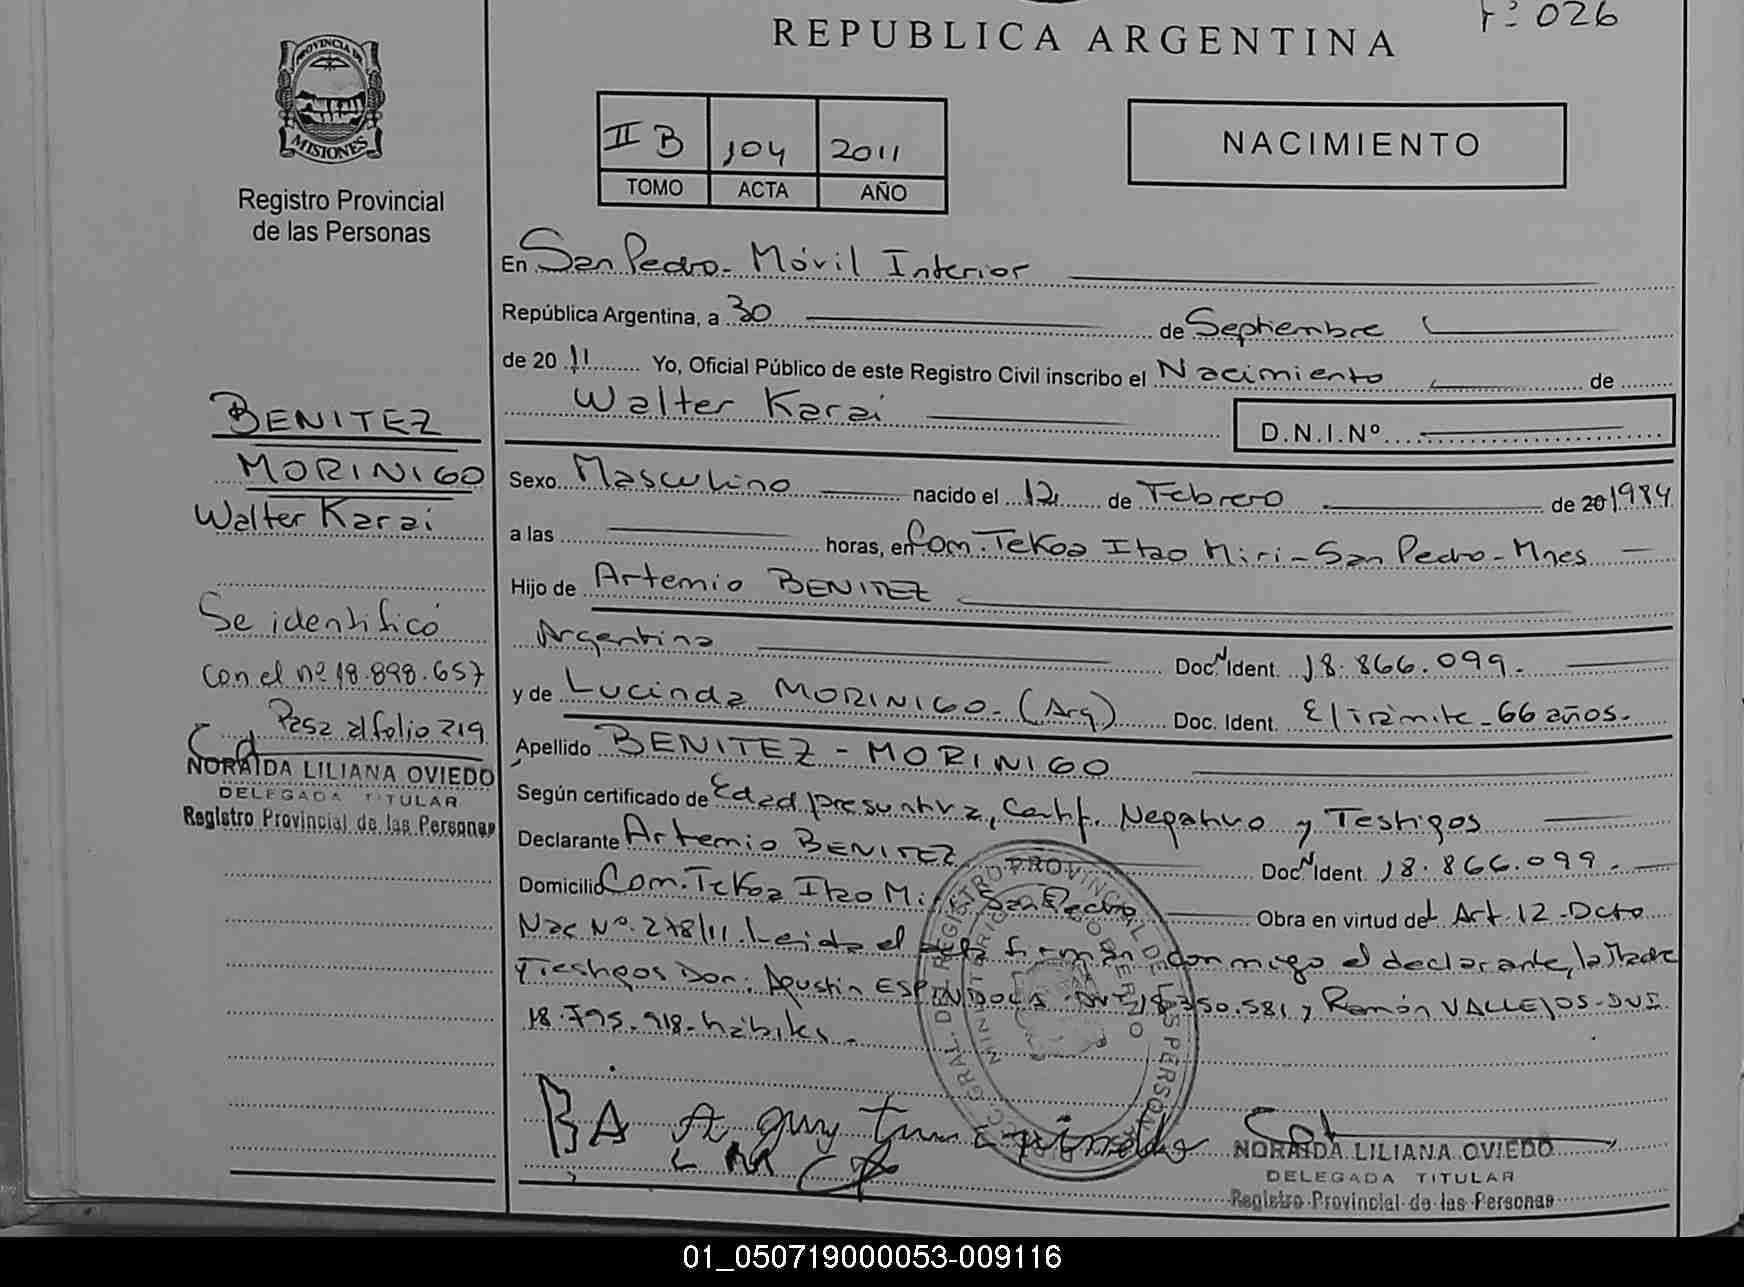 Fº 026
REPUBLICA ARGENTINA
PROVINCIA DE
MISIONES
Registro Provincial
de las Personas
II B 104 2011
TOMO ACTA AÑO
NACIMIENTO
En San Pedro - Móvil Interior
República Argentina, a 30 de Septiembre
de 20 11 Yo, Oficial Público de este Registro Civil inscribo el Nacimiento de
Walter Karai
D.N.I.Nº
BENITEZ
MORINIGO
Walter Karai
Sexo Masculino nacido el 12 de Febrero de 20 1984
a las horas, en Com. Tekoa Itao Miri - San Pedro - Mnes
Hijo de Artemio BENITEZ
Argentina Doc N Ident. 18.866.099.-
y de Lucinda MORINIGO - (Arg) Doc. Ident. E/Trámite - 66 años.-
Apellido BENITEZ - MORINIGO
Según certificado de Edad presuntiva, Certif. Negativo y Testigos
Declarante Artemio BENITEZ Doc N Ident. 18.866.099.-
Domicilio Com. Tekoa Itao Miri San Pedro Obra en virtud del Art. 12 - Dcto
Nac Nº 278/11. Leida el acta firman conmigo el declarante, la Madre
y Testigos Don: Agustin ESPINDOLA DNI 18.350.581 y Ramón VALLEJOS - DNI
18.795.918 - hábiles.-
Se identificó
con el nº 18.898.657
Pasa al folio 219
NORAIDA LILIANA OVIEDO
DELEGADA TITULAR
Registro Provincial de las Personas
BA A guy tun espindola
L M
NORAIDA LILIANA OVIEDO
DELEGADA TITULAR
Registro Provincial de las Personas
01_050719000053-009116